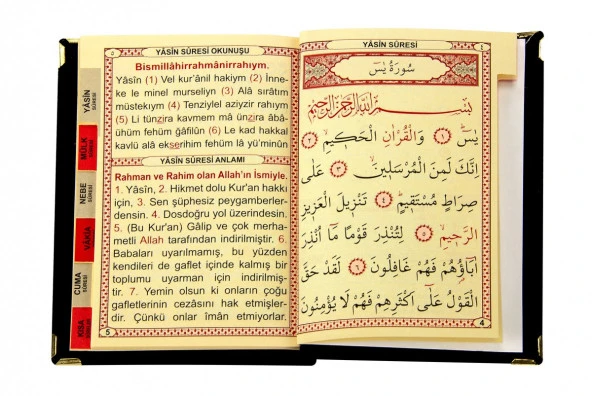 ٥
YÂSÎN SÛRESİ OKUNUŞU
Bismillâhirrahmânirrahıym.
Yâsîn (1) Vel kur'ânil hakiym (2) İnne-
ke le minel murseliyn (3) Alâ sırâtım
müstekıym (4) Tenziylel aziyzir rahıym
(5) Li tünzira kavmem mâ ünzira âbâ-
ühüm fehüm ğâfilûn (6) Le kad hakkal
kavlü alâ ekserihim fehüm lâ yü'minûn
YÂSÎN SÛRESİ ANLAMI
Rahman ve Rahim olan Allah'ın İsmiyle.
1. Yâsîn, 2. Hikmet dolu Kur'an hakkı
için, 3. Sen şüphesiz peygamberler-
densin. 4. Dosdoğru yol üzerindesin.
5. (Bu Kur'an) Gâlip ve çok merha-
metli Allah tarafından indirilmiştir. 6.
Babaları uyarılmamış, bu yüzden
kendileri de gaflet içinde kalmış bir
toplumu uyarman için indirilmiş-
tir. 7. Yemin olsun ki onların çoğu
gafletlerinin cezasını hak etmişler-
dir. Çünkü onlar iman etmiyorlar.
5
YÂSÎN
SÛRESİ
MÜLK
SÛRESİ
NEBE
SÛRESİ
VÂKIA
SÛRESİ
CUMA
SÛRESİ
KISA
YÂSÎN SÛRESİ
٤
سُورَةُ يٰسٓ
بِسْمِ اللّٰهِ الرَّحْمٰنِ الرَّحٖيمِ
يٰسٓ ﴿١﴾ وَالْقُرْاٰنِ الْحَكٖيمِ ﴿٢﴾
اِنَّكَ لَمِنَ الْمُرْسَلٖينَ ﴿٣﴾ عَلٰى
صِرَاطٍ مُسْتَقٖيمٍ ﴿٤﴾ تَنْزٖيلَ الْعَزٖيزِ
الرَّحٖيمِ ﴿٥﴾ لِتُنْذِرَ قَوْمًا مَٓا اُنْذِرَ
اٰبَٓاؤُهُمْ فَهُمْ غَافِلُونَ ﴿٦﴾ لَقَدْ حَقَّ
الْقَوْلُ عَلٰٓى اَكْثَرِهِمْ فَهُمْ لَا يُؤْمِنُونَ
4